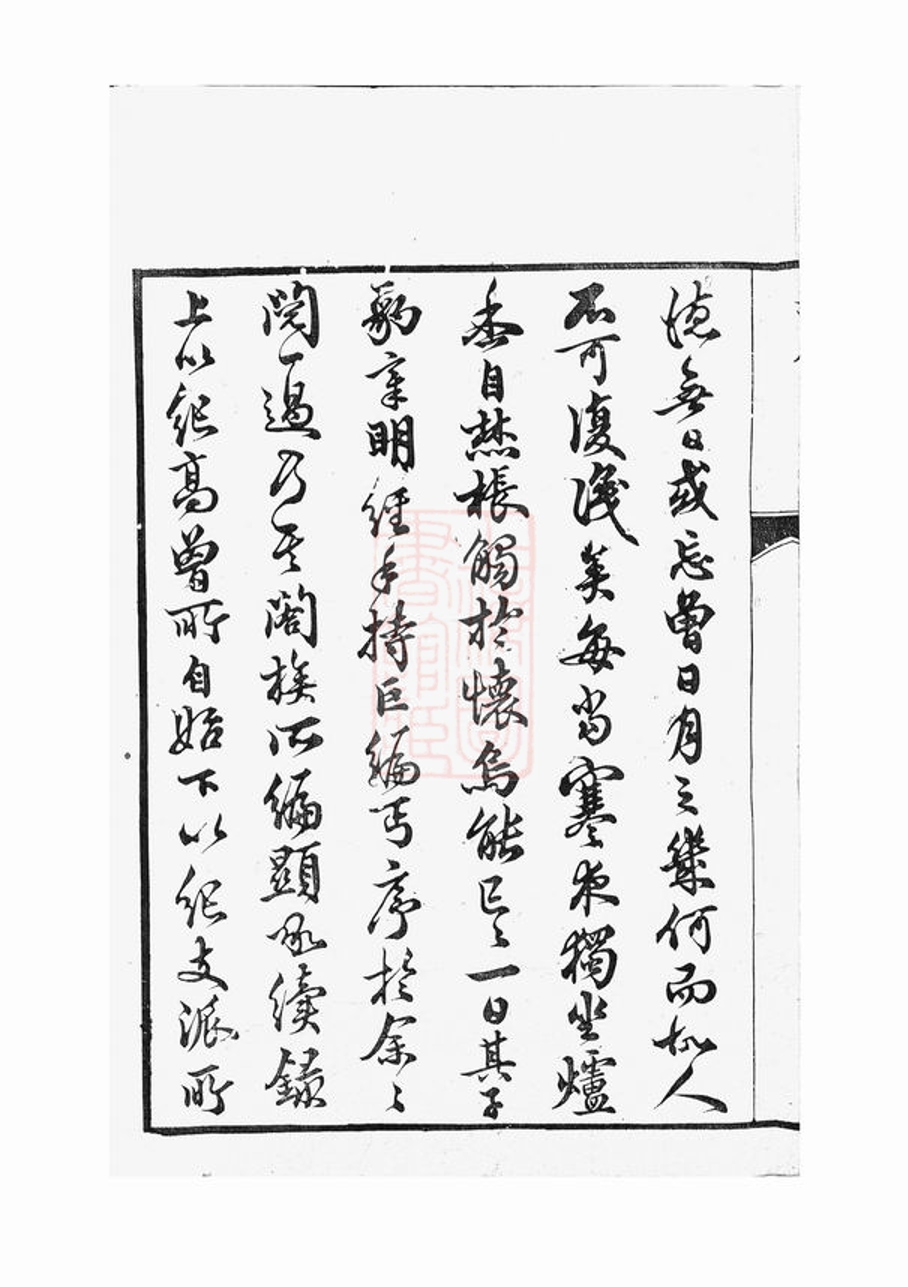 德無日或忘曾日月之幾何而故人
不可復識矣每當寒夜獨坐爐
香自焚悵觸於懷烏能已已一日其子
勷宰明經手持巨編丐序於余余
閱一過乃其閤族所編顯承續錄
上以紀高曾所自始下以紀支派所